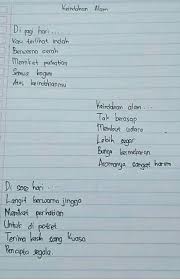 Keindahan Alam
Di pagi hari...
Kau terlihat indah
Berwarna cerah
Memikat perhatian
Semua kagum
Akan keindahanmu
Keindahan alam...
Tak berasap
Membuat udara
Lebih segar
Bunga bermekaran
Aromanya sangat harum
Di sore hari...
Langit berwarna jingga
Memikat perhatian
Untuk di potret
Terima kasih sang kuasa
Pencipta segala